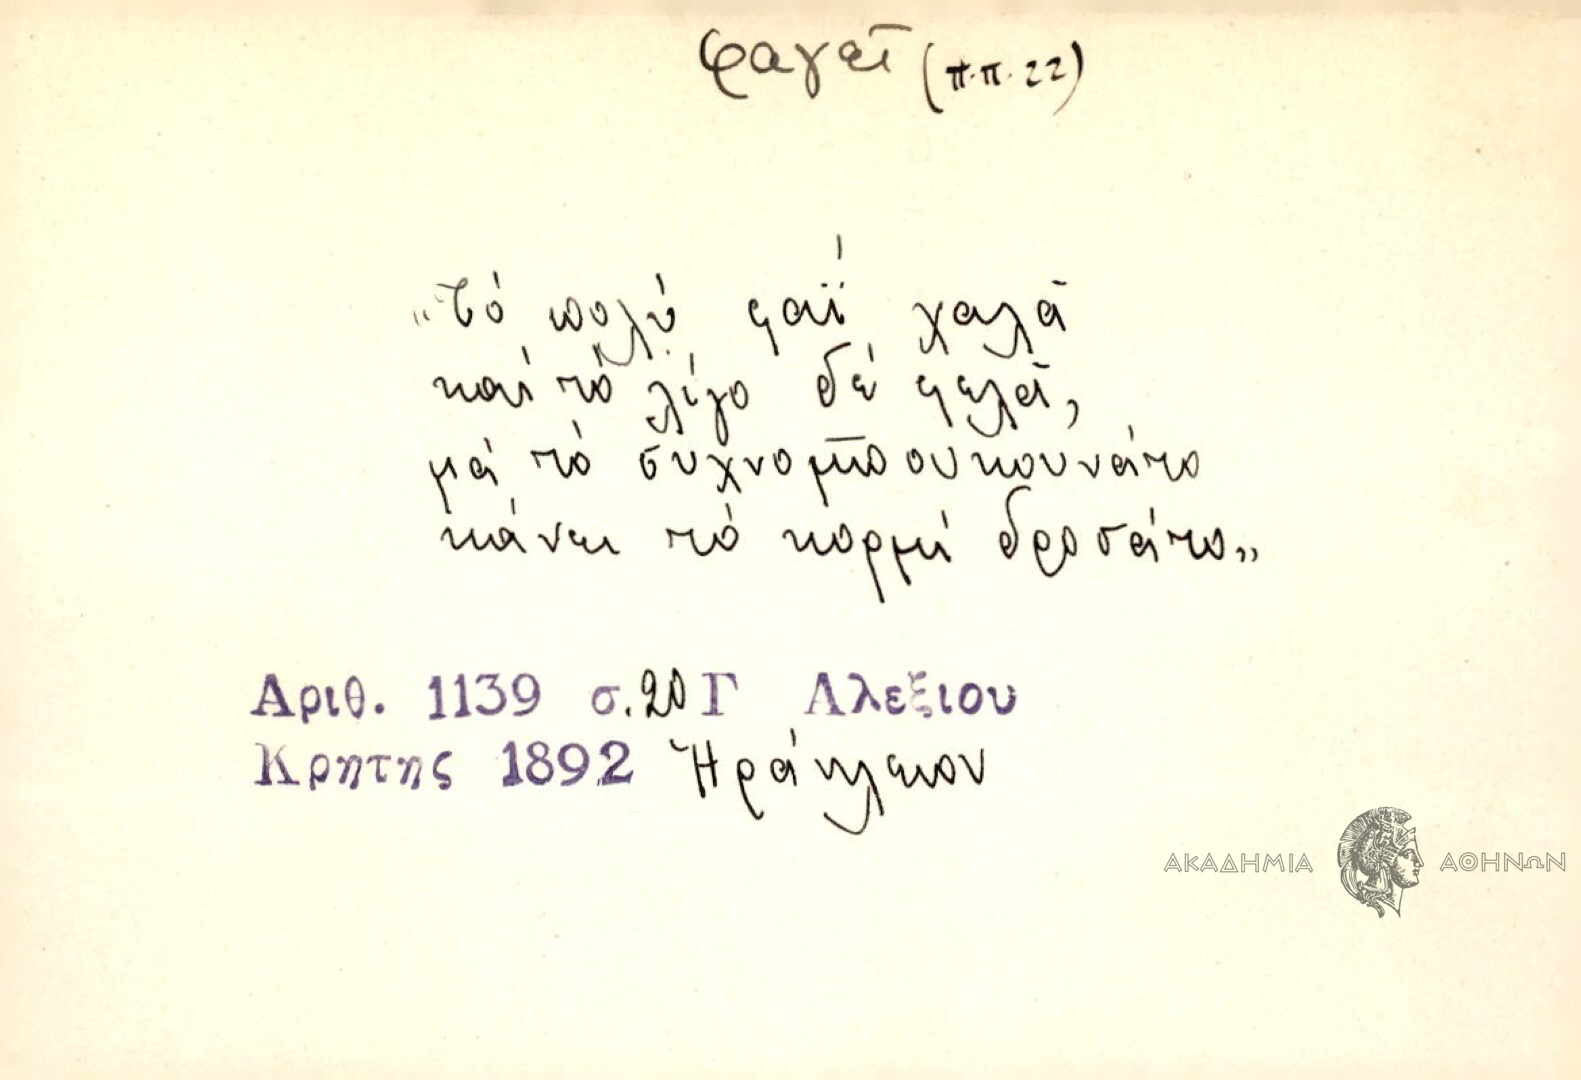 φαγεῖ (π.π. 22)
„Τό πολύ φαΐ χαλᾶ
καί τό λίγο δέ φελᾶ,
μά τό συχνομπουκουνάτο
κάνει τό κορμί δροσάτο„
Αριθ. 1139 σ. 20 Γ Αλεξιου
Κρητης 1892 Ἡράκλειον
ΑΚΑΔΗΜΙΑ ΑΘΗΝΩΝ